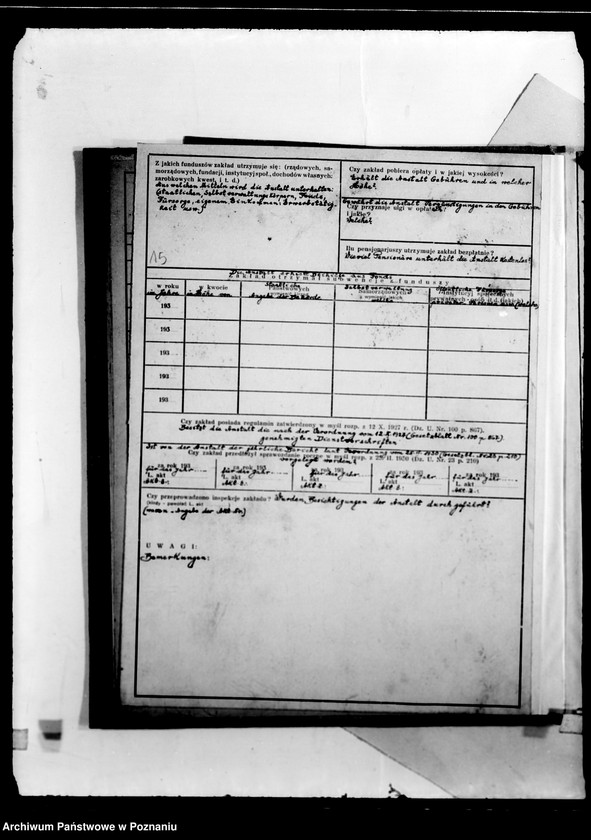 Z jakich funduszów zakład utrzymuje się: (rządowych, sa-
morządowych, fundacji, instytucyj społ., dochodów własnych:
zarobkowych kwest, i t. d.)
Aus welchen Mitteln wird die Anstalt unterhalten:
(staatlichen, Selbstverwaltungskörpern, Fonds,
Fürsorge, eigenem Einkommen: Erwerbstätig
keit usw.)
Czy zakład pobiera opłaty i w jakiej wysokości?
Erhält die Anstalt Gebühren und in welcher
Höhe?
Gewährt die Anstalt Vergünstigungen in den Gebühren
Czy przyznaje ulgi w opłatach?
i jakie?
Welche?
Ilu pensjonarjuszy utrzymuje zakład bezpłatnie?
Wieviel Pensionäre unterhält die Anstalt kostenlos?
15
Die Anstalt erhielt Beihilfe aus Fonds
Zakład otrzymał subwencje z funduszy
w roku
im Jahre
w kwocie
in Höhe von
Staatliche
Państwowych
Angabe der Behörde
Selbstverwaltung
Samorządowych
193
193
193
193
Czy zakład posiada regulamin zatwierdzony w myśl rozp. z 12 X. 1927 r. (Dz. U. Nr. 100 p. 867).
Besitzt die Anstalt die nach der Verordnung vom 12.X.1927 (Gesetzblatt Nr. 100 p. 867)
genehmigten Dienstvorschriften
Ist von der Anstalt der jährliche Bericht laut Verordnung vom
Czy zakład przedłożył sprawozdanie roczne w myśl rozp. z
II 1930 (Dz. U. Nr. 23 p. 210)
vorgelegt worden?
za rok 193
für das Jahr
L. akt
Akt Z.:
za rok 193
für das Jahr
L. akt
Akt Z.:
za rok 193
für das Jahr
L. akt
Akt Z.:
za rok 193
für das Jahr
L. akt
Akt Z.:
za rok 193
für das Jahr
L. akt
Akt Z.:
Czy przeprowadzono inspekcje zakładu? Wurden Besichtigungen der Anstalt durchgeführt?
(kiedy - powołać L. akt)
(wann - Angabe der Akt Nr)
UWAGI:
Bemerkungen:
Archiwum Państwowe w Poznaniu